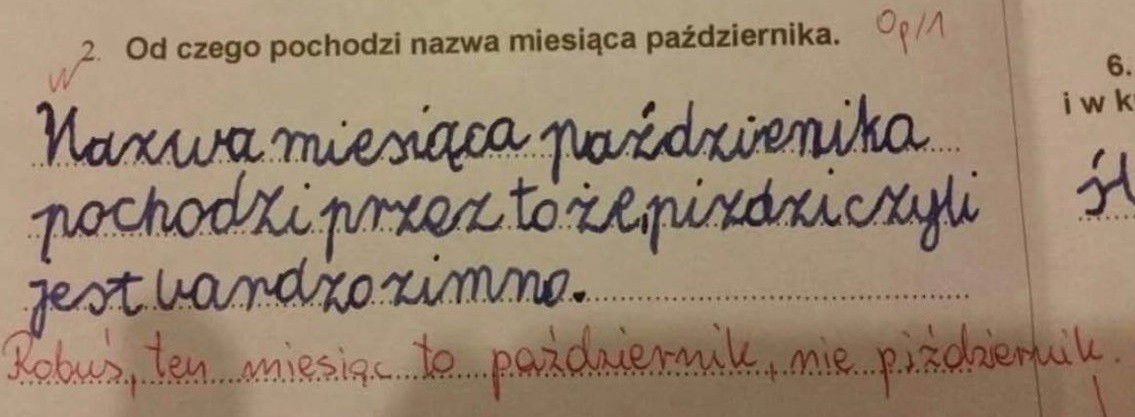 2. Od czego pochodzi nazwa miesiąca października. 0p/1
Nazwa miesiąca paździenika
pochodzi przez to że, pizdzi czyli
jest bardzo zimno.
Robuś, ten miesiąc to październik, nie piździernik.
6.
i w k
śl